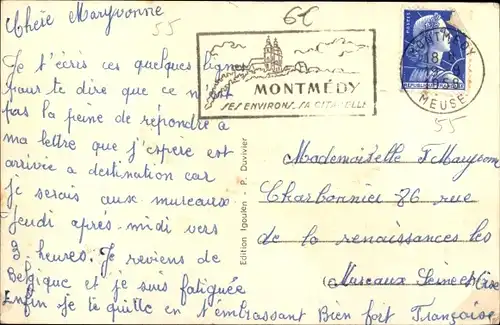 Chère Maryvonne
55
6€
Je t'écris ces quelques lignes
pour te dire que ce n'est
pas la peine de répondre à
ma lettre que j'espère est
arrivée a destination car
je serais aux mureaux
Jeudi après-midi vers
3 heures. Je reviens de
Belgique et je suis fatiguée
Enfin je te quitte en t'embrassant Bien fort Françoise
MONTMÉDY
SES ENVIRONS, SA CITADELLE
POSTES
MONTMÉDY
18
MEUSE
55
Edition Igoulen - P. Duvivier
Mademoiselle Maryvonne
Charbonnier 86 rue
de la renaissances les
Mureaux Seine et Oise